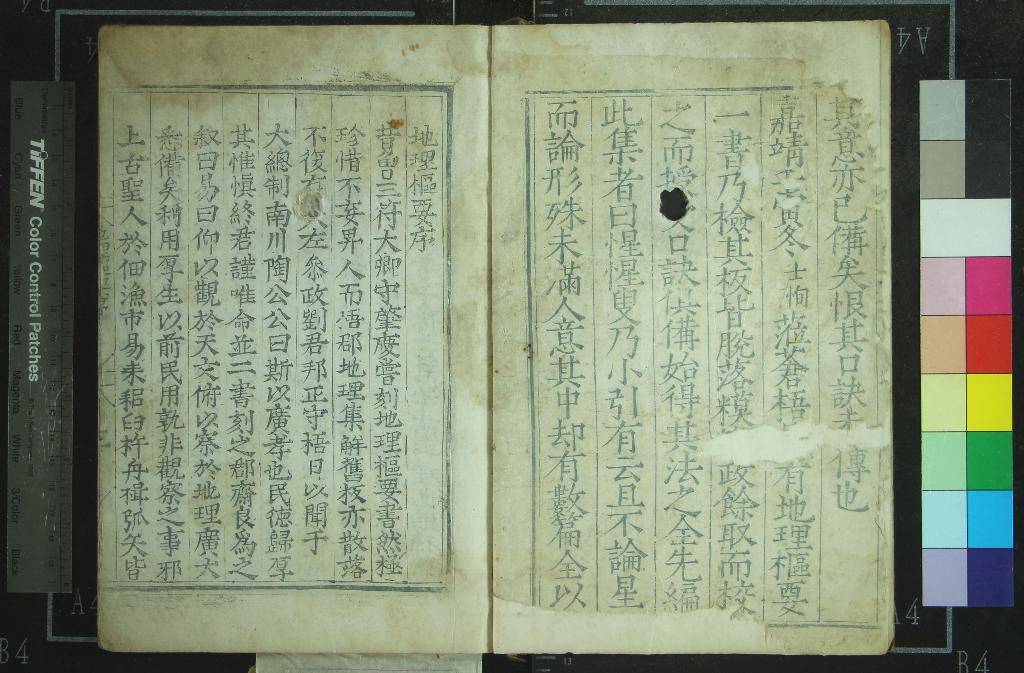 其意亦已備矣恨其口訣未傳也
嘉靖壬寅冬士恂蒞蒼梧有地理樞要
一書乃檢其板皆脫落糢政餘取而校
之而授口訣俱備始得其法之全先編
此集者曰惺惺叟乃小引有云且不論星
而論形殊未滿人意其中却有數篇全以
地理樞要序
昔曾三符大卿守肇慶嘗刻地理樞要書然極
珍惜不妄畀人而浯郡地理集解舊板亦散落
不復存左叅政劉君邦正守梧日以聞于
大總制南川陶公公曰斯以廣孝也民德歸厚
其惟愼終君謹唯命並二書刻之郡齋良爲之
叙曰易曰仰以觀於天文俯以察於地理廣大
悉備矣利用厚生以前民用孰非觀察之事邪
上古聖人於佃漁市易耒耜臼杵舟楫弧矢皆
TIFFEN Color Control Patches
Blue
Cyan
Green
Yellow
Red
Magenta
White
3/Color
Black
A4
A4
A4
B4
B4